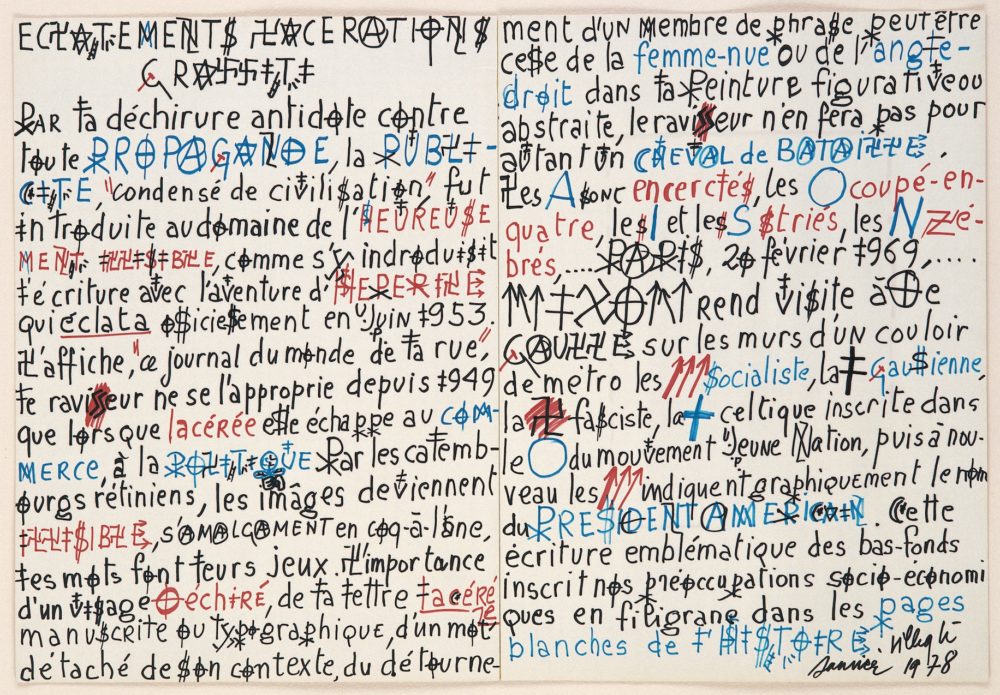 ECLATEMENTS LACERATIONS
GRAFFITI
PAR la déchirure antidote contre
toute PROPAGANDE, la PUBLI-
CITE, "condensé de civilisation" fut
introduite au domaine de l'HEUREUSE
MENT ILLISIBLE, comme s'y indroduisit
l'écriture avec l'aventure d'HEPERILE
qui éclata oficiellement en Juin 1953.
L'affiche, "ce journal du monde de la rue,"
le raviSSeur ne se l'approprie depuis 1949
que lorsque lacérée elle échappe au COM-
MERCE, à la POLITIQUE. Par les catemb-
ourgs rétiniens, les images deviennent
ILLISIBLE, s'AMALGAMENT en coq-à-l'âne,
les mots font leurs jeux. L'importance
d'un visage déchIRÉ, de la lettre lacéré
manuscrite ou typographique, d'un mot
détaché de son contexte, du détourne-
ment d'un membre de phrase peut être
celle de la femme-nue ou de l'angle-
droit dans la Peinture figurative ou
abstraite, le raviSSeur n'en fera pas pour
autant un CHEVAL de BATAILLE.
Les A sont encerclés, les O coupé-en-
quatre, les I et les S striés, les N zé-
brés,.... PARIS, 28 février 1969,.....
NIXON rend visite à De
GAULLE sur les murs d'un couloir
de métro les socialiste, la gaullienne,
la fasciste, la celtique inscrite dans
le O du mouvement Jeune Nation, puis à nou-
veau les indiquent graphiquement le nom
du PRESIDENT AMERICAIN. Cette
écriture emblématique des bas-fonds
inscrit nos préoccupations socio-économi
ques en filigrane dans les pages
blanches de l'HISTOIRE.
Villeglé
Janvier 1978